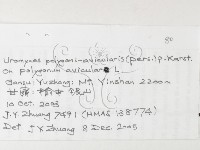 80
Uromyces polygoni-avicularis (pers.) P. Karst.
on polygonum aviculare L.
Gansu Yuzhong: Mt Yinshan 2200m
甘肃 榆中
10 Oct. 2005
J.Y Zhuang 7491 (HMAS :38774)
Det J.Y Zhuang 8 Dec. 2005